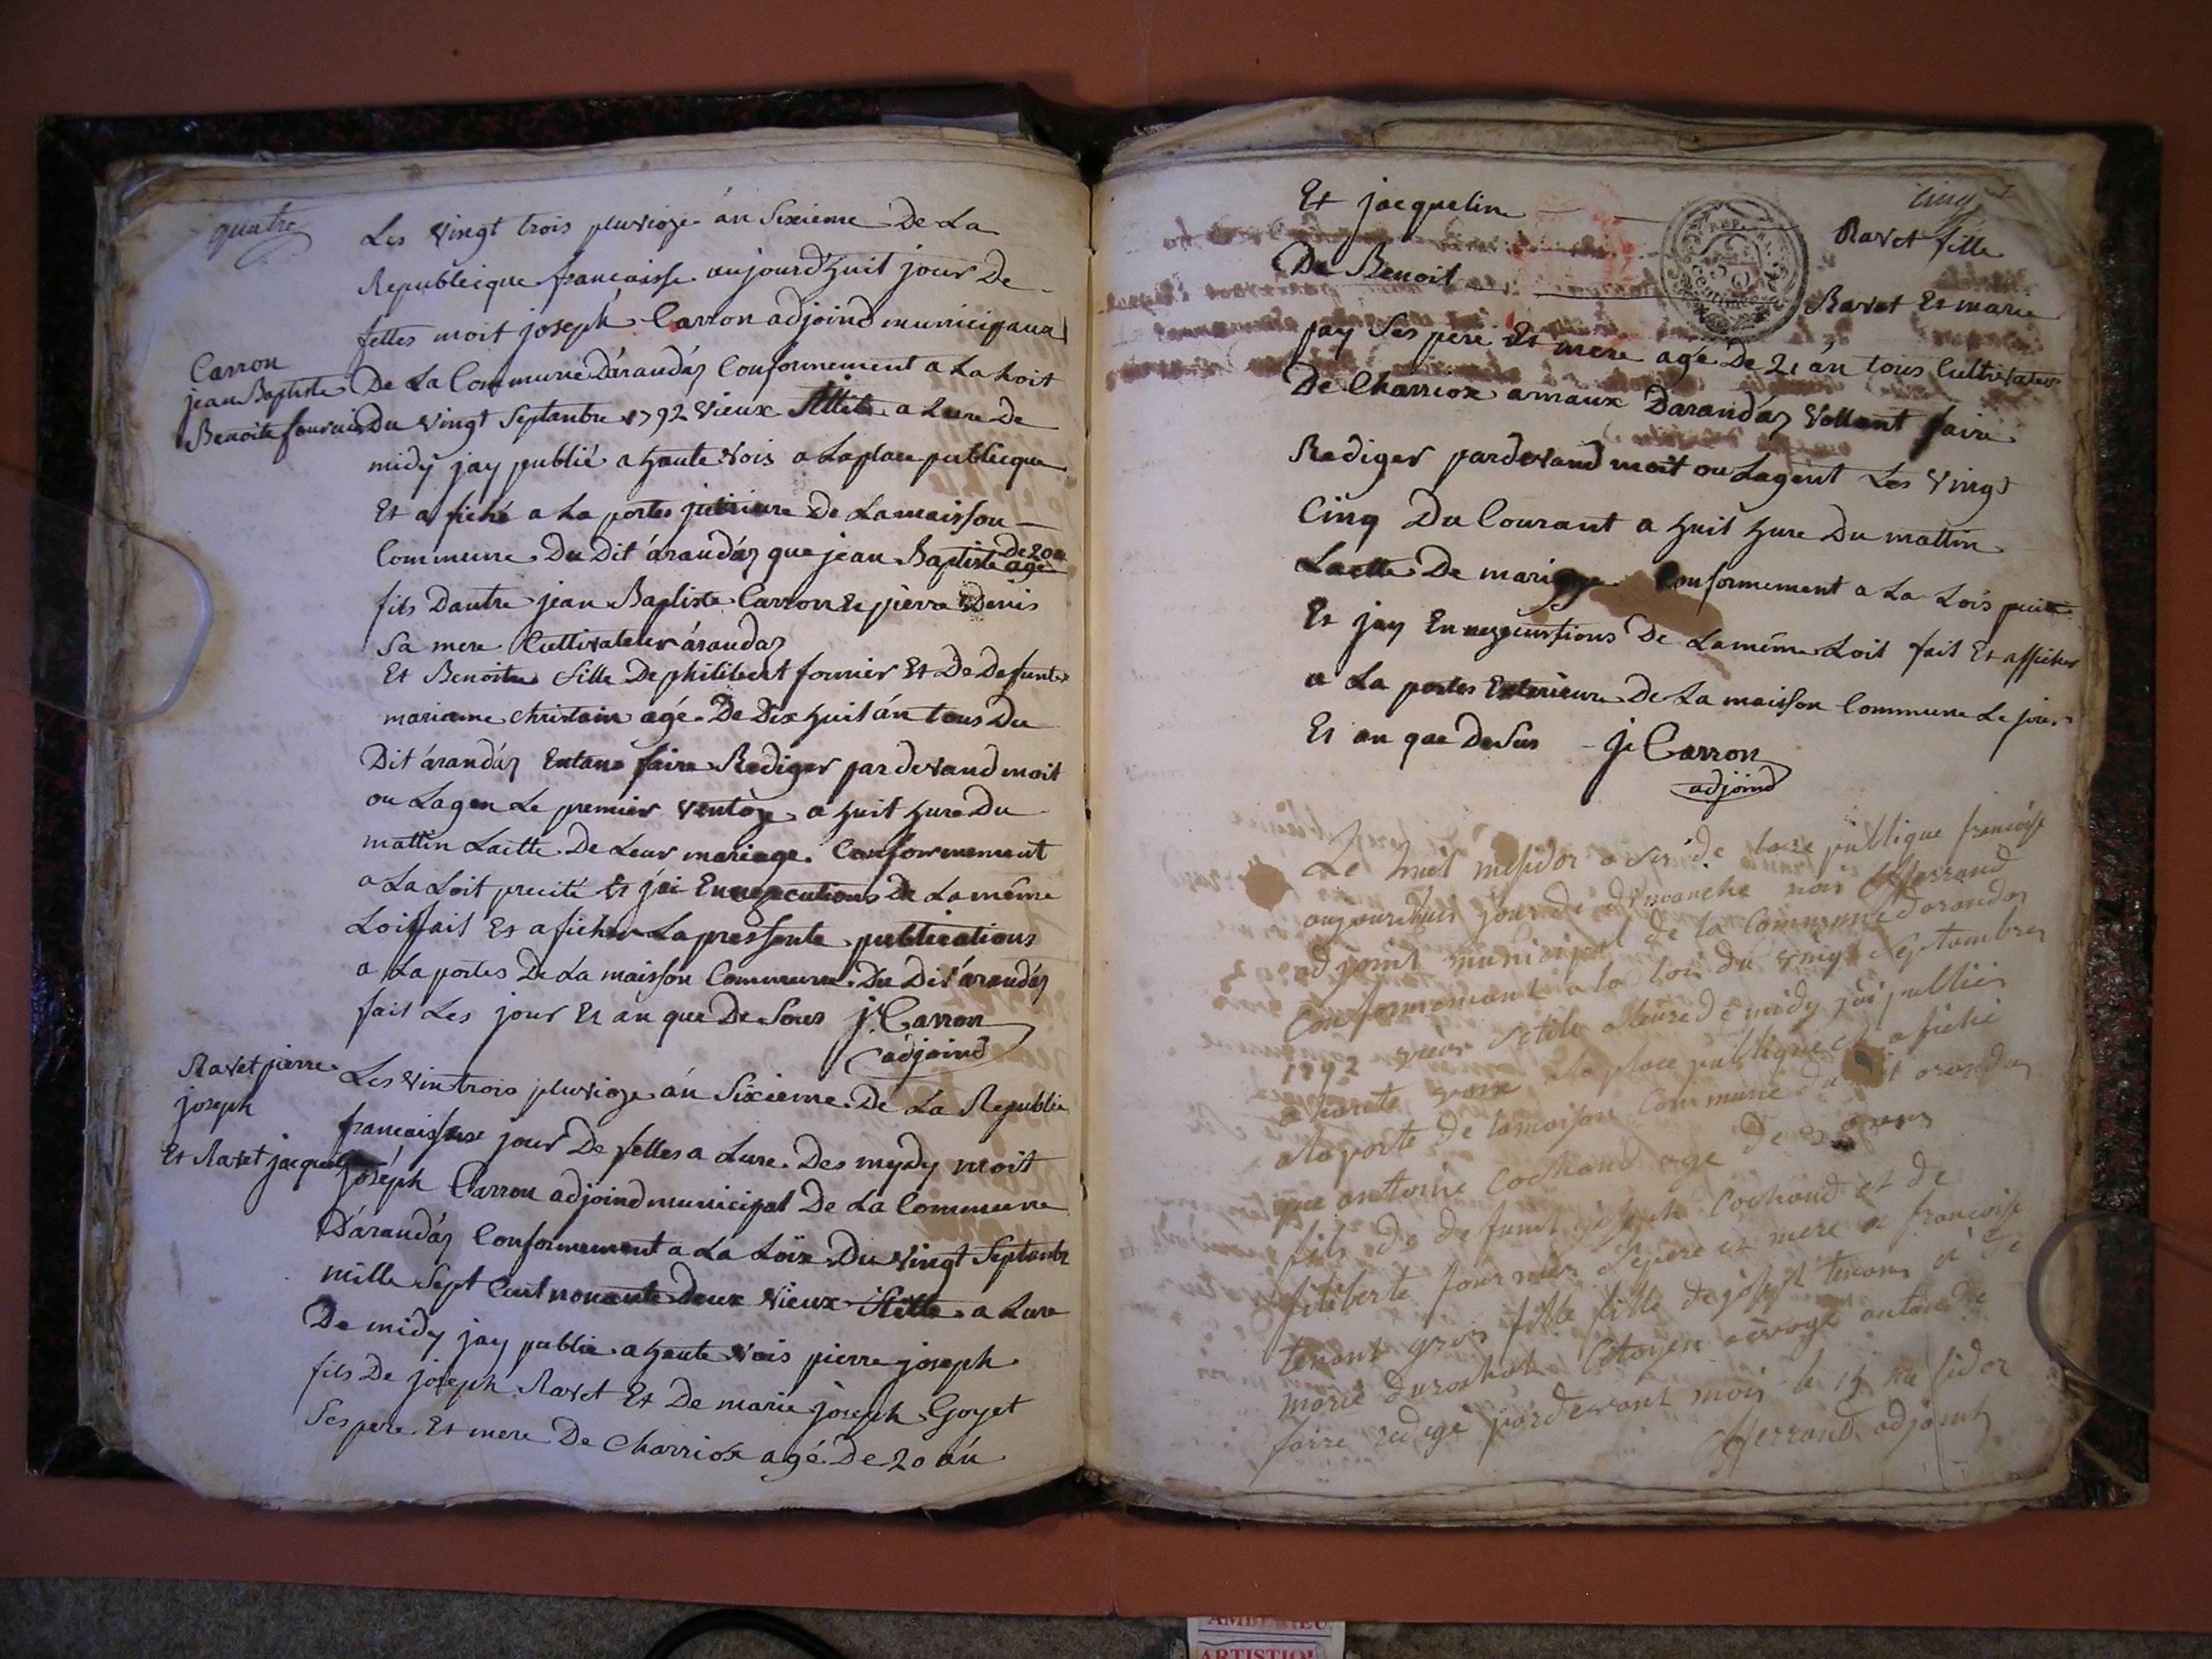 quatre
Les vingt trois pluvioze án Sixieme De La
Republeique francaisse aujourdhuit jour De
fettes moit joseph Carron adjoind municipaux
Carron
jean Baptiste
Benoite fournier
De La Commune Dárandáz Conformement a La Loit
Du vingt Septanbre 1792 vieux Stille a Lure De
midy jay publié a haute vois a Laplace publicque
Et a fiché a La portes De Lamaisson
Commeune Du Dit árandáz que jean Baptiste agé
De 20 a
fils Dautre jean Baptiste Carron Et pierra Denis
Sa mere Cultivateur árandaz
Et Benoite fille De philibert fournier Et De Defunte
marianne christain agé De Dix huit án tous Du
Dit árandáz Entane faire Rediger par devand moit
ou Lagen Le premier ventôze a huit hure Du
mattin Laitte De Leur mariage. Conformement
a La Loit precité Et jái Enexecutions De La même
Loit fait Et aficher La pressente publications
a La portes De La maisson Commeune Du Dit árandáz
fait Les jour Et an que De Sous j. Carron
adjoind
Ravet pierre
joseph
Et Ravet jacqueline
Les vin trois pluvioze án Sixieme De La Republi
francaisse jour De fettes a Lure Des mydy moit
joséph Carron adjoind municipal De La Commeune
Dárandáz Conformement a La Loix Du vingt Septanbr
mille Sept Cent nonante Deux vieux Stille a Lure
De midy jay publié a haute vois pierre joseph
fils De joseph Ravet Et De marie joseph Goyet
Ses pere Et mere De Charriox agé De 20 án
cinq
Et jacqueline Ravet fille
De Benoit Ravet Et marie
jay Ses pere Et mere agé De 21 án tous Cultivateur
De Charriox amaux Darandáz Vollant faire
Rediger pardevand moit ou Lagent Les vingt
Cinq Du Courant a huit hure Du mattin
Laitte De mariage Conformement a La Lois
Et jay Enexecustions De Lamême Loit fait Et afficher
a La portes Exterieure De La maisson Commune Le jour
Et an que De Sus j. Carron
adjoind
Le huit mesidor a de la re publique francoise
aujourdhuit jour de dimanche moi Ferrand
adjoint municipal de la Commune darandas
Conformement a la loi du vingt Septambres
1792 vieux Stile a leure de midy jai publier
a haute voix a la place publique et a fiché
a la porte de la maison Commune du dit arandas
que antoine Cochand age de ans
fils de defunt joseph Cochand et de
filiberte fournier Ses pere et mere et francoise
tenant fille de joseph tenant et de
marie durochat Citoyen
faire redige par devant moi le 15 me sidor
Ferrand adjoint